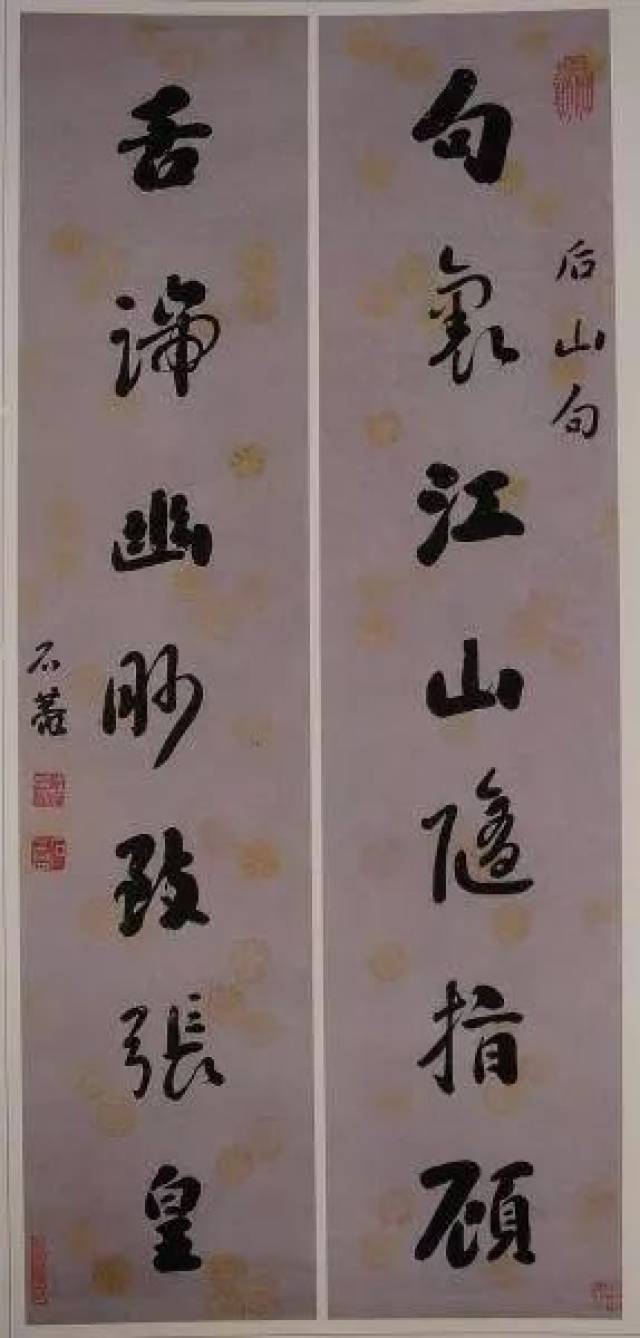 后山句
句裏江山隨指顧
舌端幽眇致張皇
石菴